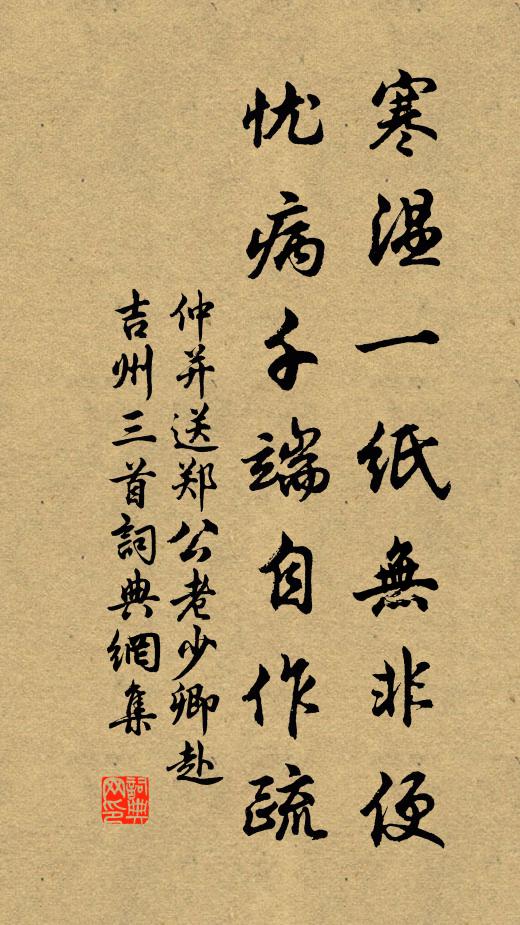 寒温一紙無非便
忧病千端自作疏
仲并送郑公老少卿赴
吉州三首詞典網集
詞典网印